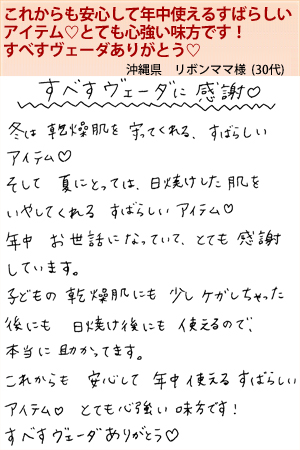 これからも安心して年中使えるすばらしい
アイテム♡とても心強い味方です！
すべすヴェーダありがとう♡
沖縄県　リボンママ様 (30代)
すべすヴェーダに 感謝♡
冬は 乾燥肌を 守ってくれる、すばらしい
アイテム♡
そして 夏にとっては、日焼けした 肌を
いやしてくれる すばらしい アイテム♡
年中 お世話になっていて、とても 感謝
しています。
子どもの 乾燥肌にも 少しケガしちゃった
後にも 日焼け後にも 使えるので、
本当に 助かってます。
これからも 安心して 年中使える すばらしい
アイテム♡ とても心強い 味方です!
すべすヴェーダありがとう♡